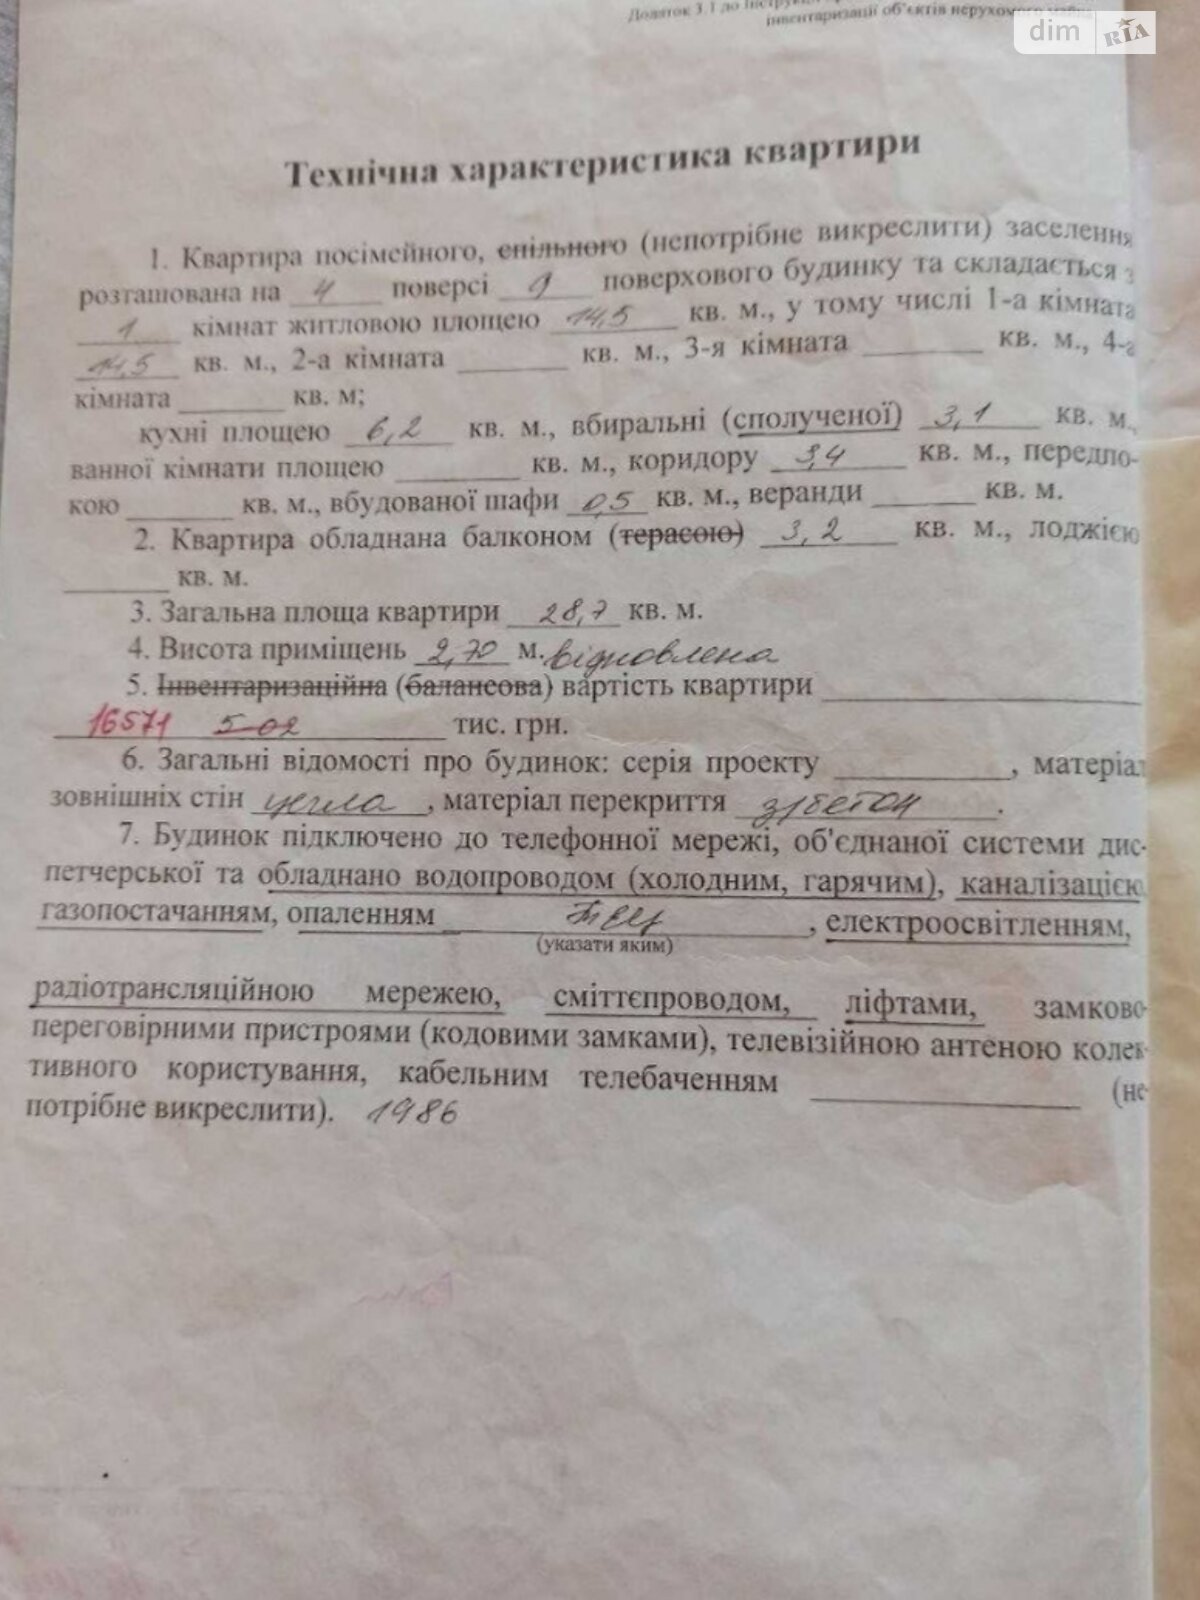 Додаток 3.1 до Інструкції
інвентаризації об'єктів нерухомого майна
dim RIA
Технічна характеристика квартири
1. Квартира посімейного, спільного (непотрібне викреслити) заселення
розташована на 4 поверсі 9 поверхового будинку та складається з
1 кімнат житловою площею 14,5 кв. м., у тому числі 1-а кімната
14,5 кв. м., 2-а кімната ______ кв. м., 3-я кімната ______ кв. м., 4-а
кімната ______ кв. м;
кухні площею 6,2 кв. м., вбиральні (сполученої) 3,1 кв. м.,
ванної кімнати площею ______ кв. м., коридору 3,4 кв. м., передпо-
кою ______ кв. м., вбудованої шафи 0,5 кв. м., веранди ______ кв. м.
2. Квартира обладнана балконом (терасою) 3,2 кв. м., лоджією
______ кв. м.
3. Загальна площа квартири 28,7 кв. м.
4. Висота приміщень 2,70 м. відновлена
5. Інвентаризаційна (балансова) вартість квартири ______
16571 5-02 тис. грн.
6. Загальні відомості про будинок: серія проекту ______, матеріал
зовнішніх стін цегла, матеріал перекриття з/бетон.
7. Будинок підключено до телефонної мережі, об'єднаної системи дис-
петчерської та обладнано водопроводом (холодним, гарячим), каналізацією
газопостачанням, опаленням ТЕЦ, електроосвітленням,
(указати яким)
радіотрансляційною мережею, сміттєпроводом, ліфтами, замково-
переговірними пристроями (кодовими замками), телевізійною антеною колек-
тивного користування, кабельним телебаченням ______ (не-
потрібне викреслити). 1986